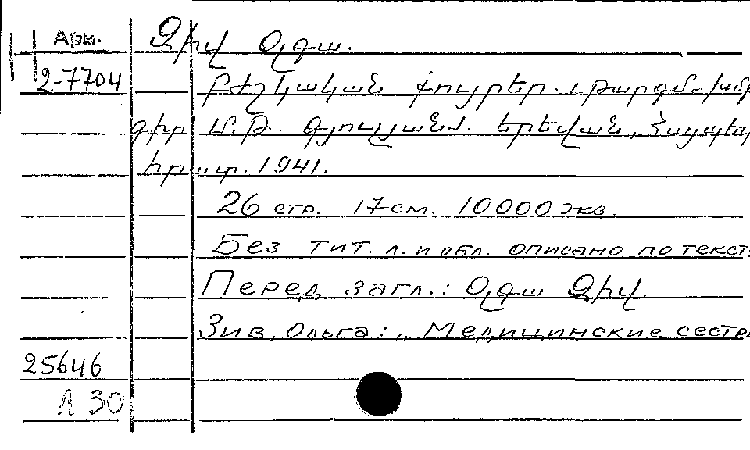 Арм. Զիվ Օլգա.
2-7704 Բժշկական քույրեր. (թարգմ. խմբ
գիր Մ. Թ. Երեվան, Հայպետ
հրատ. 1941.
26 стр. 17 см. 10000 экз.
Без тит. л. и обл. описано по текст.
Перед загл.: Օլգա Զիվ
Зив, Ольга: „Медицинские сестр
25646
Л 30